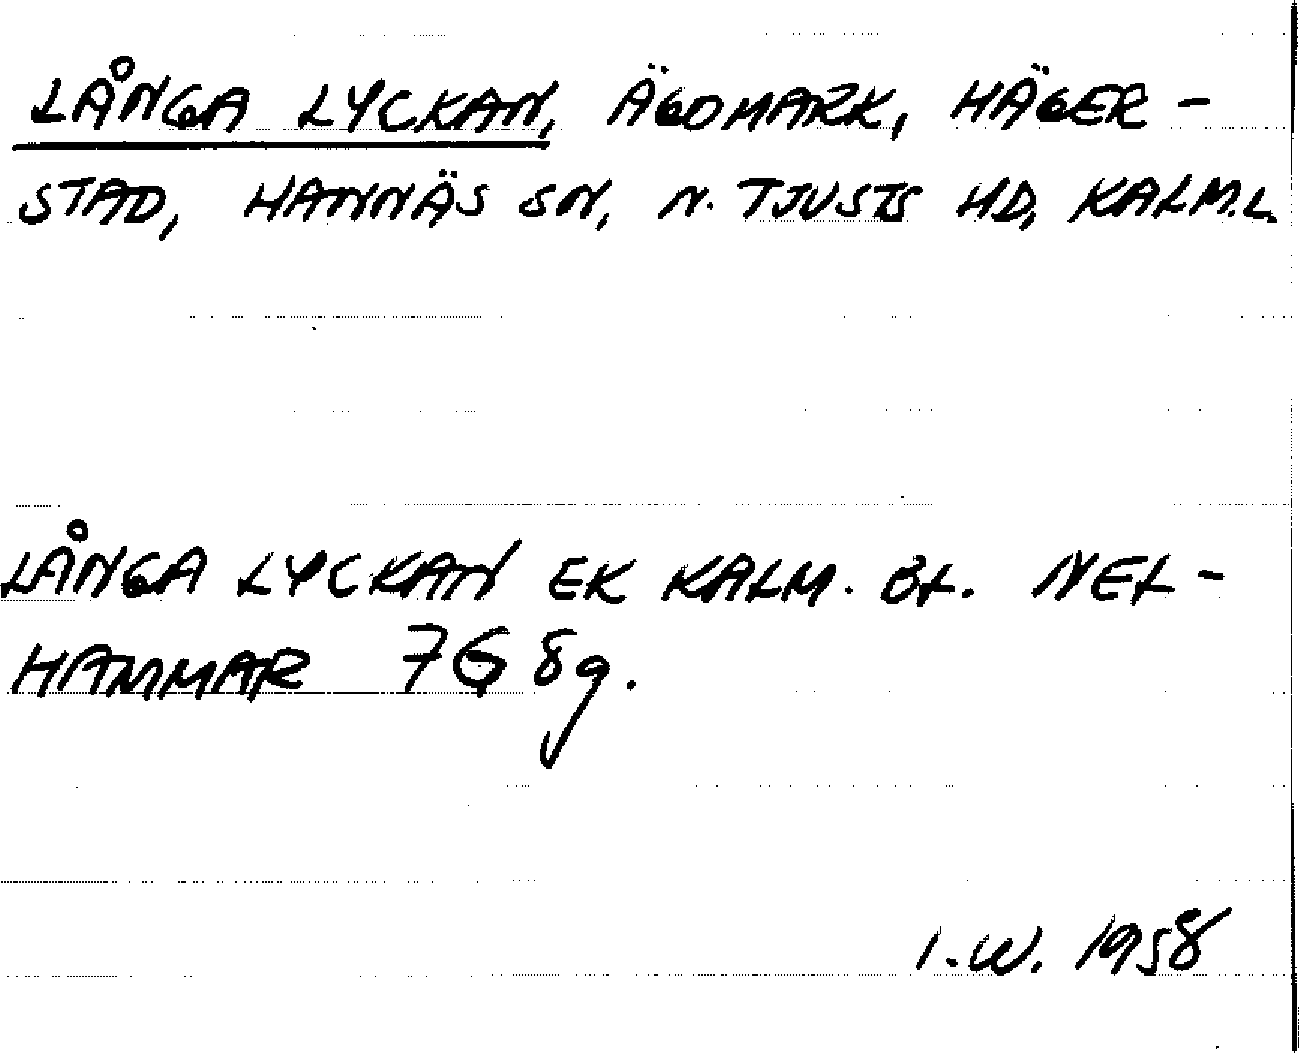 LÅNGA LYCKAN, ÄGOMARK, HÄGER-
STAD, HANNÄS SN, N. TJUSTS HD, KALM.L.
LÅNGA LYCKAN EK KALM. BL. NEL-
HAMMAR 7G 8g.
I.W. 1958